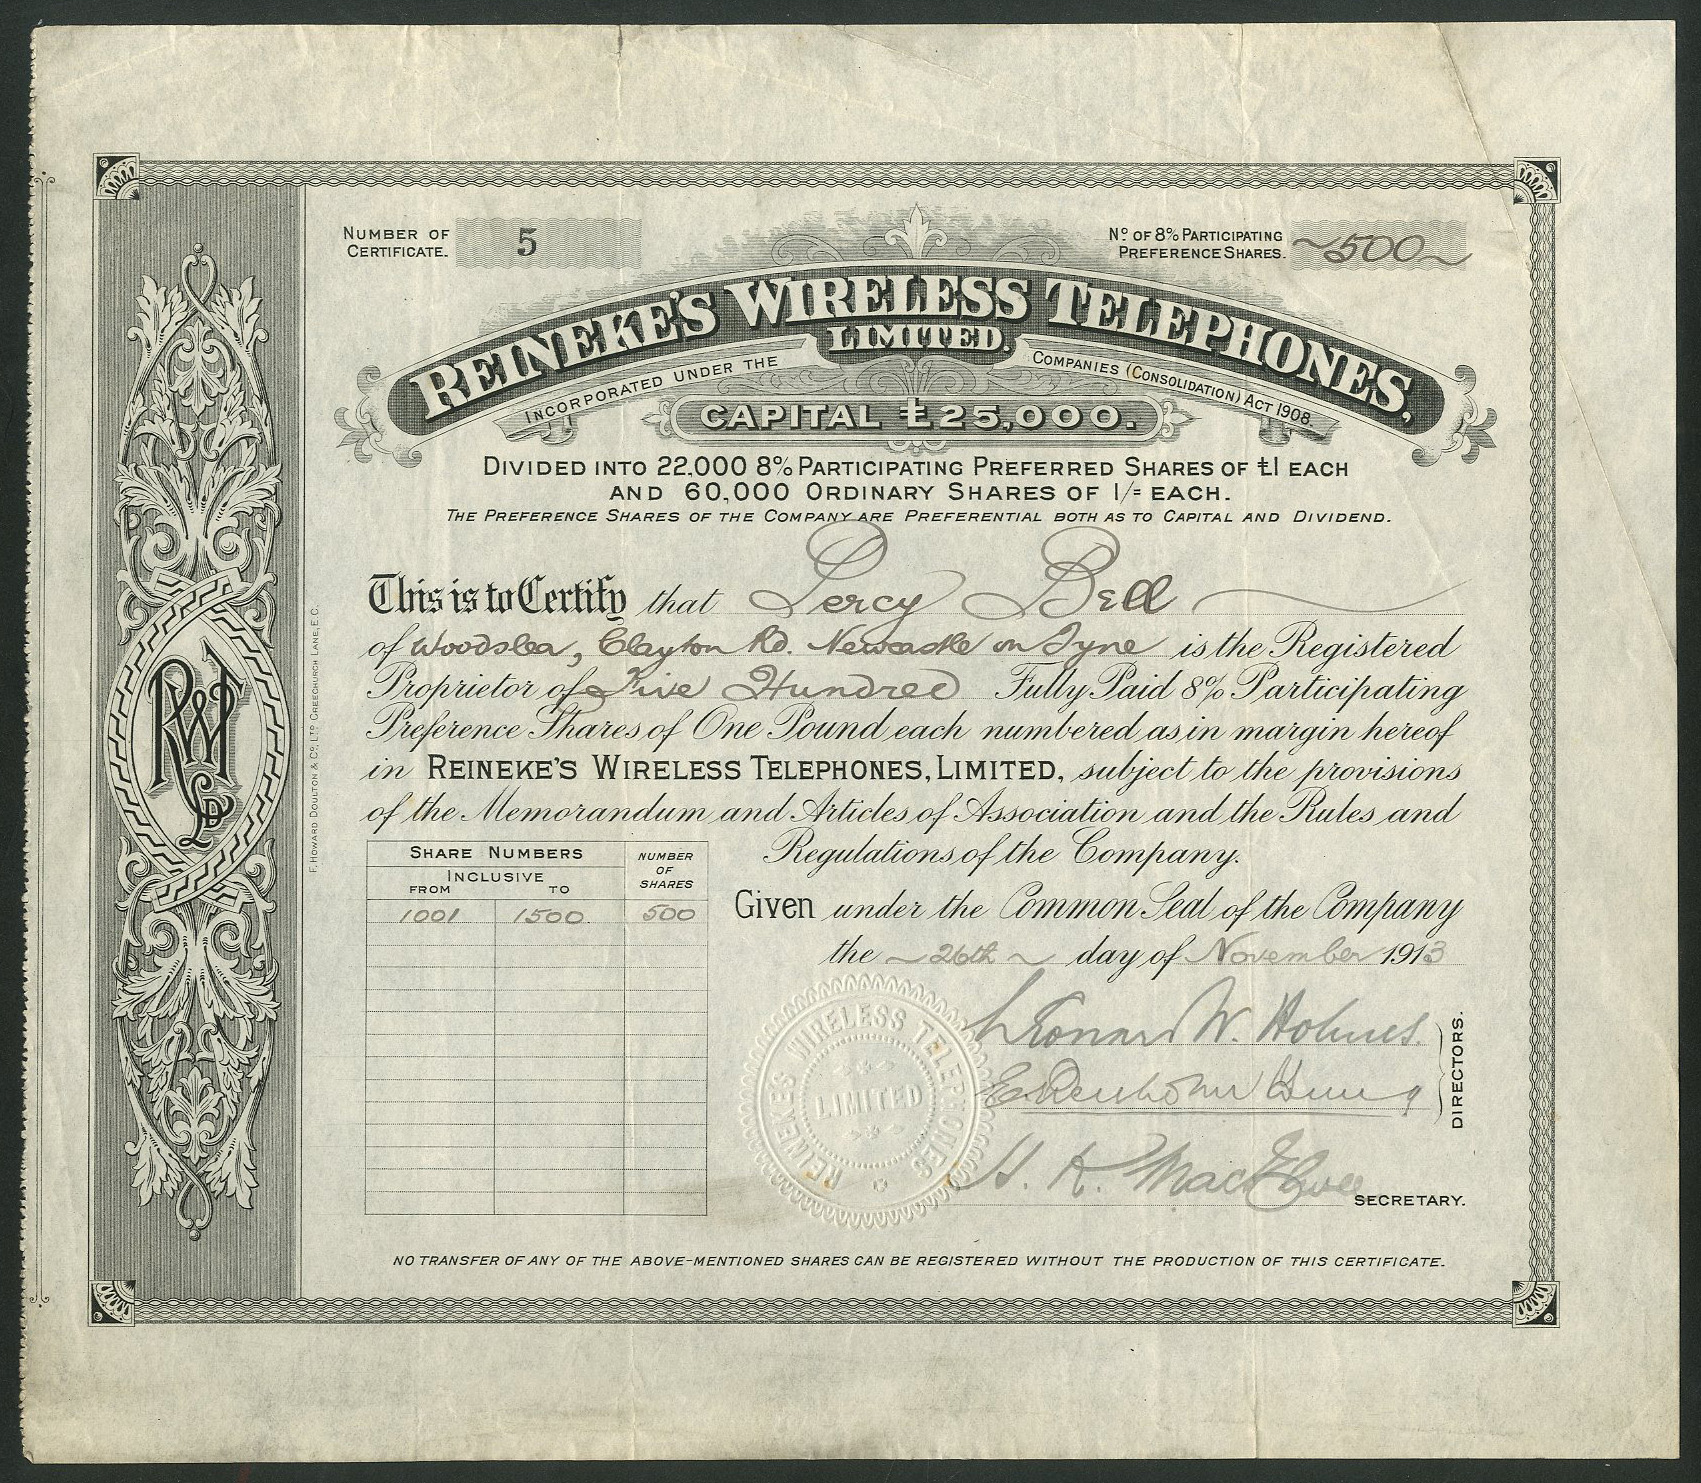 NUMBER OF CERTIFICATE. 5
No. OF 8% PARTICIPATING PREFERENCE SHARES. ~500~
REINEKE'S WIRELESS TELEPHONES,
LIMITED.
INCORPORATED UNDER THE COMPANIES (CONSOLIDATION) ACT 1908.
CAPITAL £25,000.
DIVIDED INTO 22.000 8% PARTICIPATING PREFERRED SHARES OF £1 EACH
AND 60,000 ORDINARY SHARES OF 1/= EACH.
THE PREFERENCE SHARES OF THE COMPANY ARE PREFERENTIAL BOTH AS TO CAPITAL AND DIVIDEND.
This is to Certify that Percy Bell
of Woodslea, Clayton Rd. Newcastle on Tyne is the Registered
Proprietor of Five Hundred Fully Paid 8% Participating
Preference Shares of One Pound each numbered as in margin hereof
in REINEKE'S WIRELESS TELEPHONES, LIMITED, subject to the provisions
of the Memorandum and Articles of Association and the Rules and
Regulations of the Company.
SHARE NUMBERS
INCLUSIVE
FROM TO
NUMBER OF SHARES
1001 1500. 500
Given under the Common Seal of the Company
the ~26th~ day of November 1913
REINEKE'S WIRELESS TELEPHONES
LIMITED
W. Holmes.
DIRECTORS.
H. K.
SECRETARY.
NO TRANSFER OF ANY OF THE ABOVE-MENTIONED SHARES CAN BE REGISTERED WITHOUT THE PRODUCTION OF THIS CERTIFICATE.
F. HOWARD DOULTON & Co. LTD CREECHURCH LANE, E.C.
RWT
LD